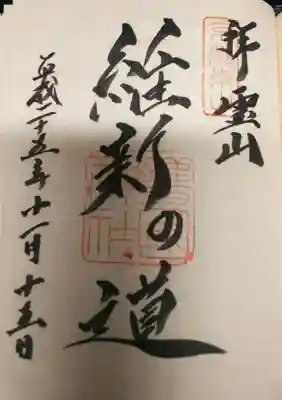 拝霊山
維新の道
平成二十五年十一月十五日